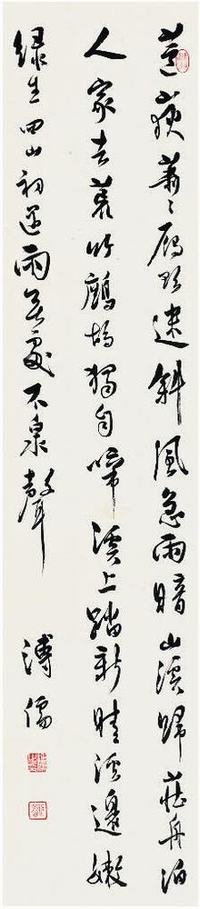 蘆荻蕭〻雁影迷斜風急雨暗山溪歸莊舟泊
人家去竹鷓鴣獨自啼溪上踏新晴溪邊嫩
綠生四山初過雨無處不泉聲
溥儒